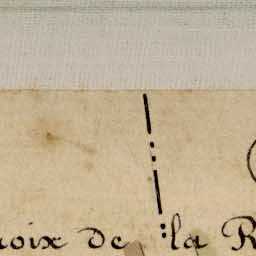 roix de la R